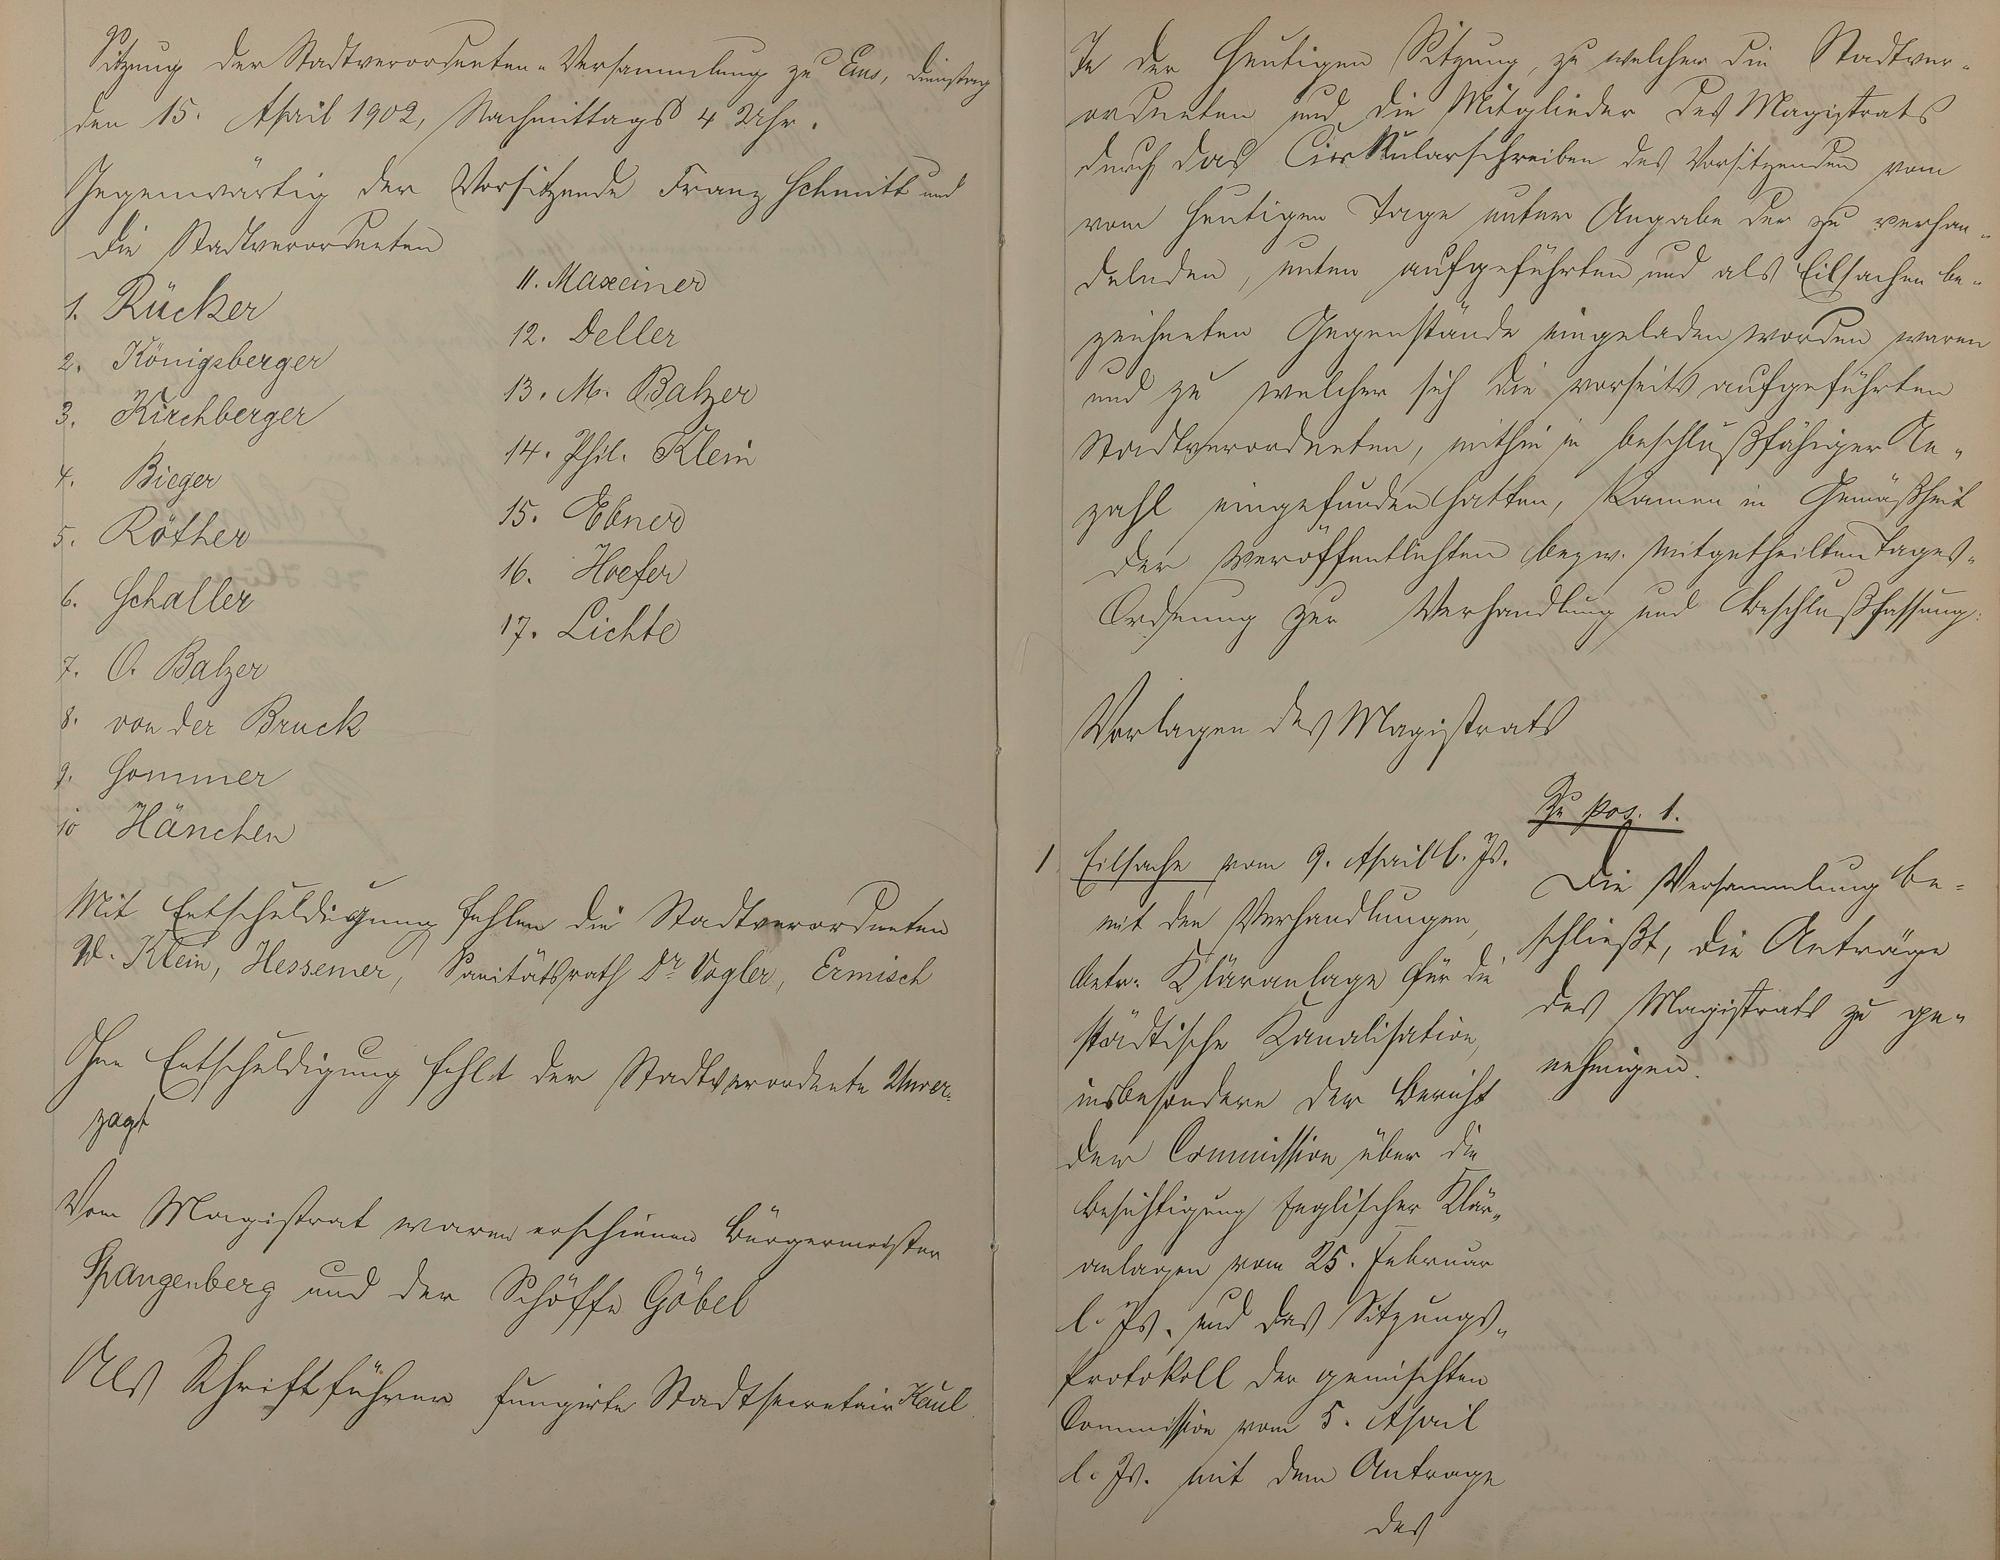 Sitzung der Stadtverordneten-Versammlung zu Ems, Dienstag
den 15. April 1902, Nachmittags 4 Uhr.
Gegenwärtig der Vorsitzende Franz Schmitt und
die Stadtverordneten
1. Rücker
2. Königsberger
3. Kirchberger
4. Bieger
5. Röther
6. Schaller
7. O. Balzer
8. von der Bruck
9. Sommer
10 Hänchen
11. Maxeiner
12. Deller
13. M. Balzer
14. Phil. Klein
15. Ebner
16. Hoefer
17. Lichte
Mit Entschuldigung fehlen die Stadtverordneten
W. Klein, Hessemer, Sanitätsrath Dr Vogler, Ermisch
Ohne Entschuldigung fehlt der Stadtverordnete Unver-
zagt
Vom Magistrat waren erschienen Bürgermeister
Spangenberg und der Schöffe Göbel
Als Schriftführer fungirte Stadtsecretair Kaul
In der heutigen Sitzung, zu welcher die Stadtver-
ordneten und die Mitglieder des Magistrats
durch das Cirkularschreiben des Vorsitzenden vom
vom heutigen Tage unter Angabe der zu verhan-
delnden, unten aufgeführten und als Eilsachen be-
zeichneten Gegenstände eingeladen worden waren
und zu welcher sich die vorseits aufgeführten
Stadtverordneten, mithin in beschlußfähiger An-
zahl eingefunden hatten, kamen in Gemäßheit
der veröffentlichten bezw. mitgetheilten Tages-
Ordnung zur Verhandlung und Beschlußfassung:
Vorlagen des Magistrats
1 Eilsache vom 9. April l. Js.
mit den Verhandlungen,
betr. Kläranlage für die
städtische Kanalisation,
insbesondere der Bericht
der Commission über die
Besichtigung Englischer Klär-
anlagen vom 25. Februar
l. Js. und das Sitzungs-
Protokoll der gemischten
Commission vom 5. April
l. Js. mit dem Antrage
des
Zu pos. 1.
Die Versammlung be-
schließt, die Anträge
des Magistrats zu ge-
nehmigen.